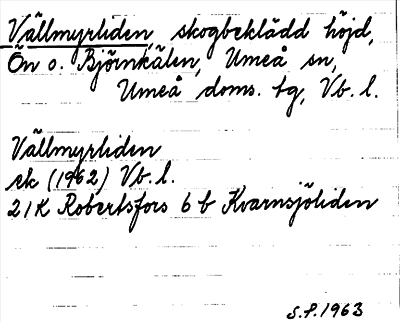 Vällmyrliden, skogbeklädd höjd,
Ön o. Björnkälen, Umeå sn,
Umeå doms. tg, Vb. l.
Vällmyrliden
ek (1962) Vb. l.
21K Robertsfors 6 b Kvarnsjöliden
S.P. 1963